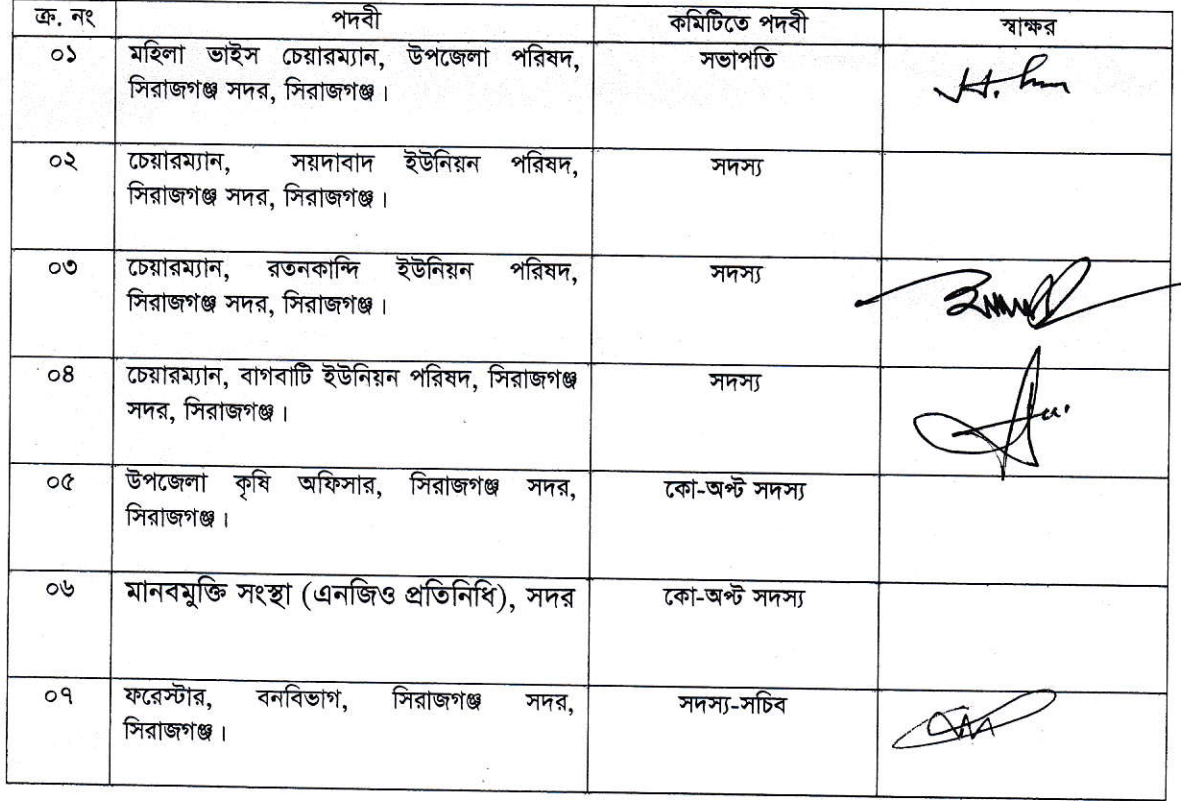 ক্র. নং পদবী কমিটিতে পদবী স্বাক্ষর
০১ মহিলা ভাইস চেয়ারম্যান, উপজেলা পরিষদ, সভাপতি
সিরাজগঞ্জ সদর, সিরাজগঞ্জ।
০২ চেয়ারম্যান, সয়দাবাদ ইউনিয়ন পরিষদ, সদস্য
সিরাজগঞ্জ সদর, সিরাজগঞ্জ।
০৩ চেয়ারম্যান, রতনকান্দি ইউনিয়ন পরিষদ, সদস্য
সিরাজগঞ্জ সদর, সিরাজগঞ্জ।
০৪ চেয়ারম্যান, বাগবাটি ইউনিয়ন পরিষদ, সিরাজগঞ্জ সদস্য
সদর, সিরাজগঞ্জ।
০৫ উপজেলা কৃষি অফিসার, সিরাজগঞ্জ সদর, কো-অপ্ট সদস্য
সিরাজগঞ্জ।
০৬ মানবমুক্তি সংস্থা (এনজিও প্রতিনিধি), সদর কো-অপ্ট সদস্য
০৭ ফরেস্টার, বনবিভাগ, সিরাজগঞ্জ সদর, সদস্য-সচিব
সিরাজগঞ্জ।